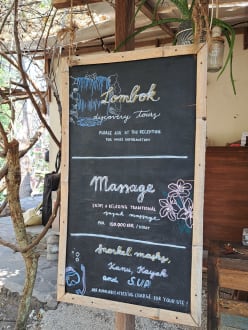 Lombok
discovery tours
PLEASE ASK AT THE RECEPTION
FOR MORE INFORMATION
Massage
ENJOY A RELAXING TRADITIONAL
sasak massage
FOR 150.000 IDR /
Snorkel masks,
Kanu, Kayak
and SUP
ARE AVAILABLE FREE OF CHARGE FOR YOUR USE!